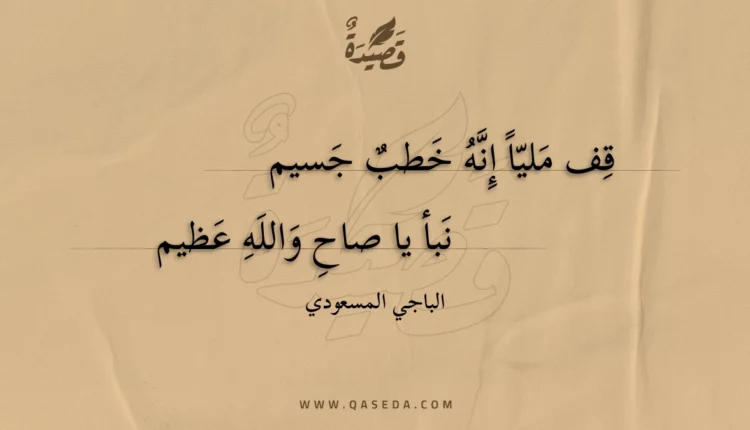 قَصِيْدَةٌ
قِف مَليّاً إِنَّهُ خَطبٌ جَسيم
نَبأ يا صاحِ وَاللَهِ عَظيم
الباجي المسعودي
WWW.QASEDA.COM